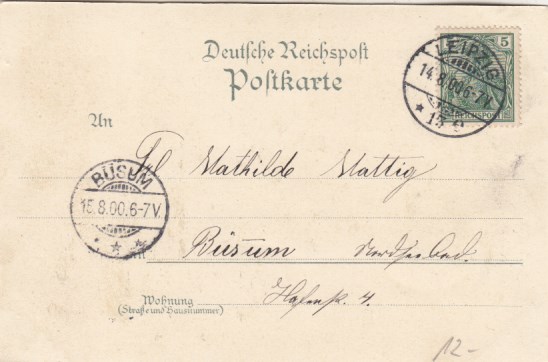 Deutsche Reichspost
Postkarte
5
REICHSPOST
LEIPZIG
14.8.00.6-7V.
* 13
An
Frl Mathilde Mattig
BÜSUM
15.8.00.6-7V.
* *
in
Büsum Nordseebad.
Wohnung
(Straße und Hausnummer)
Hafenstr. 4.
12-